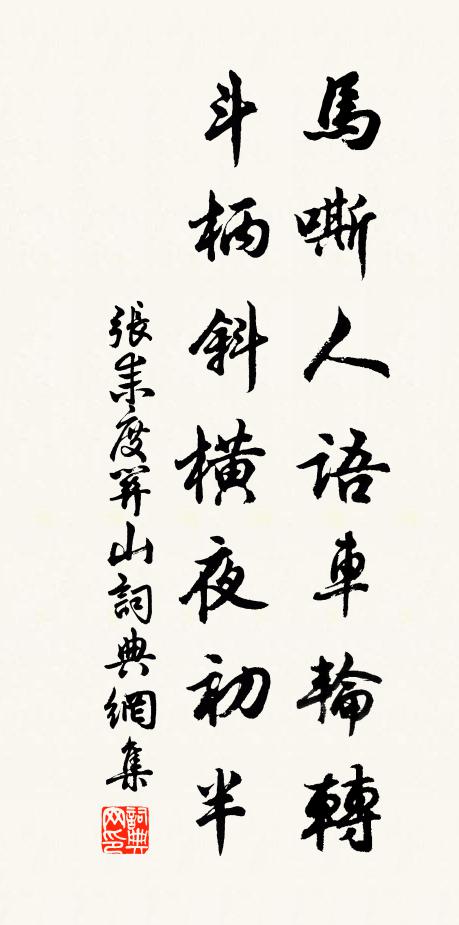 馬嘶人語車輪轉
斗柄斜橫夜初半
張耒度關山詞典網集
詞典网印